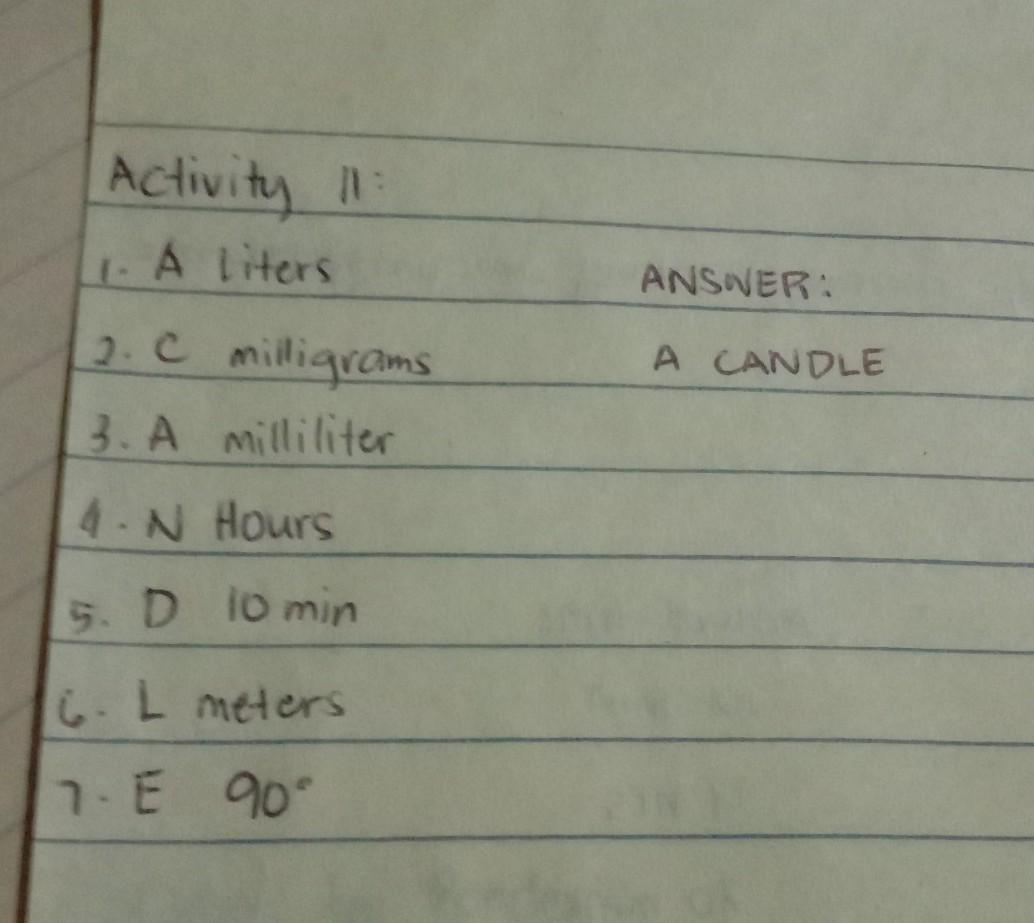 Activity 11:
1. A Liters
ANSWER:
2. C milligrams
A CANDLE
3. A milliliter
4. N Hours
5. D 10 min
6. L meters
7. E 90°